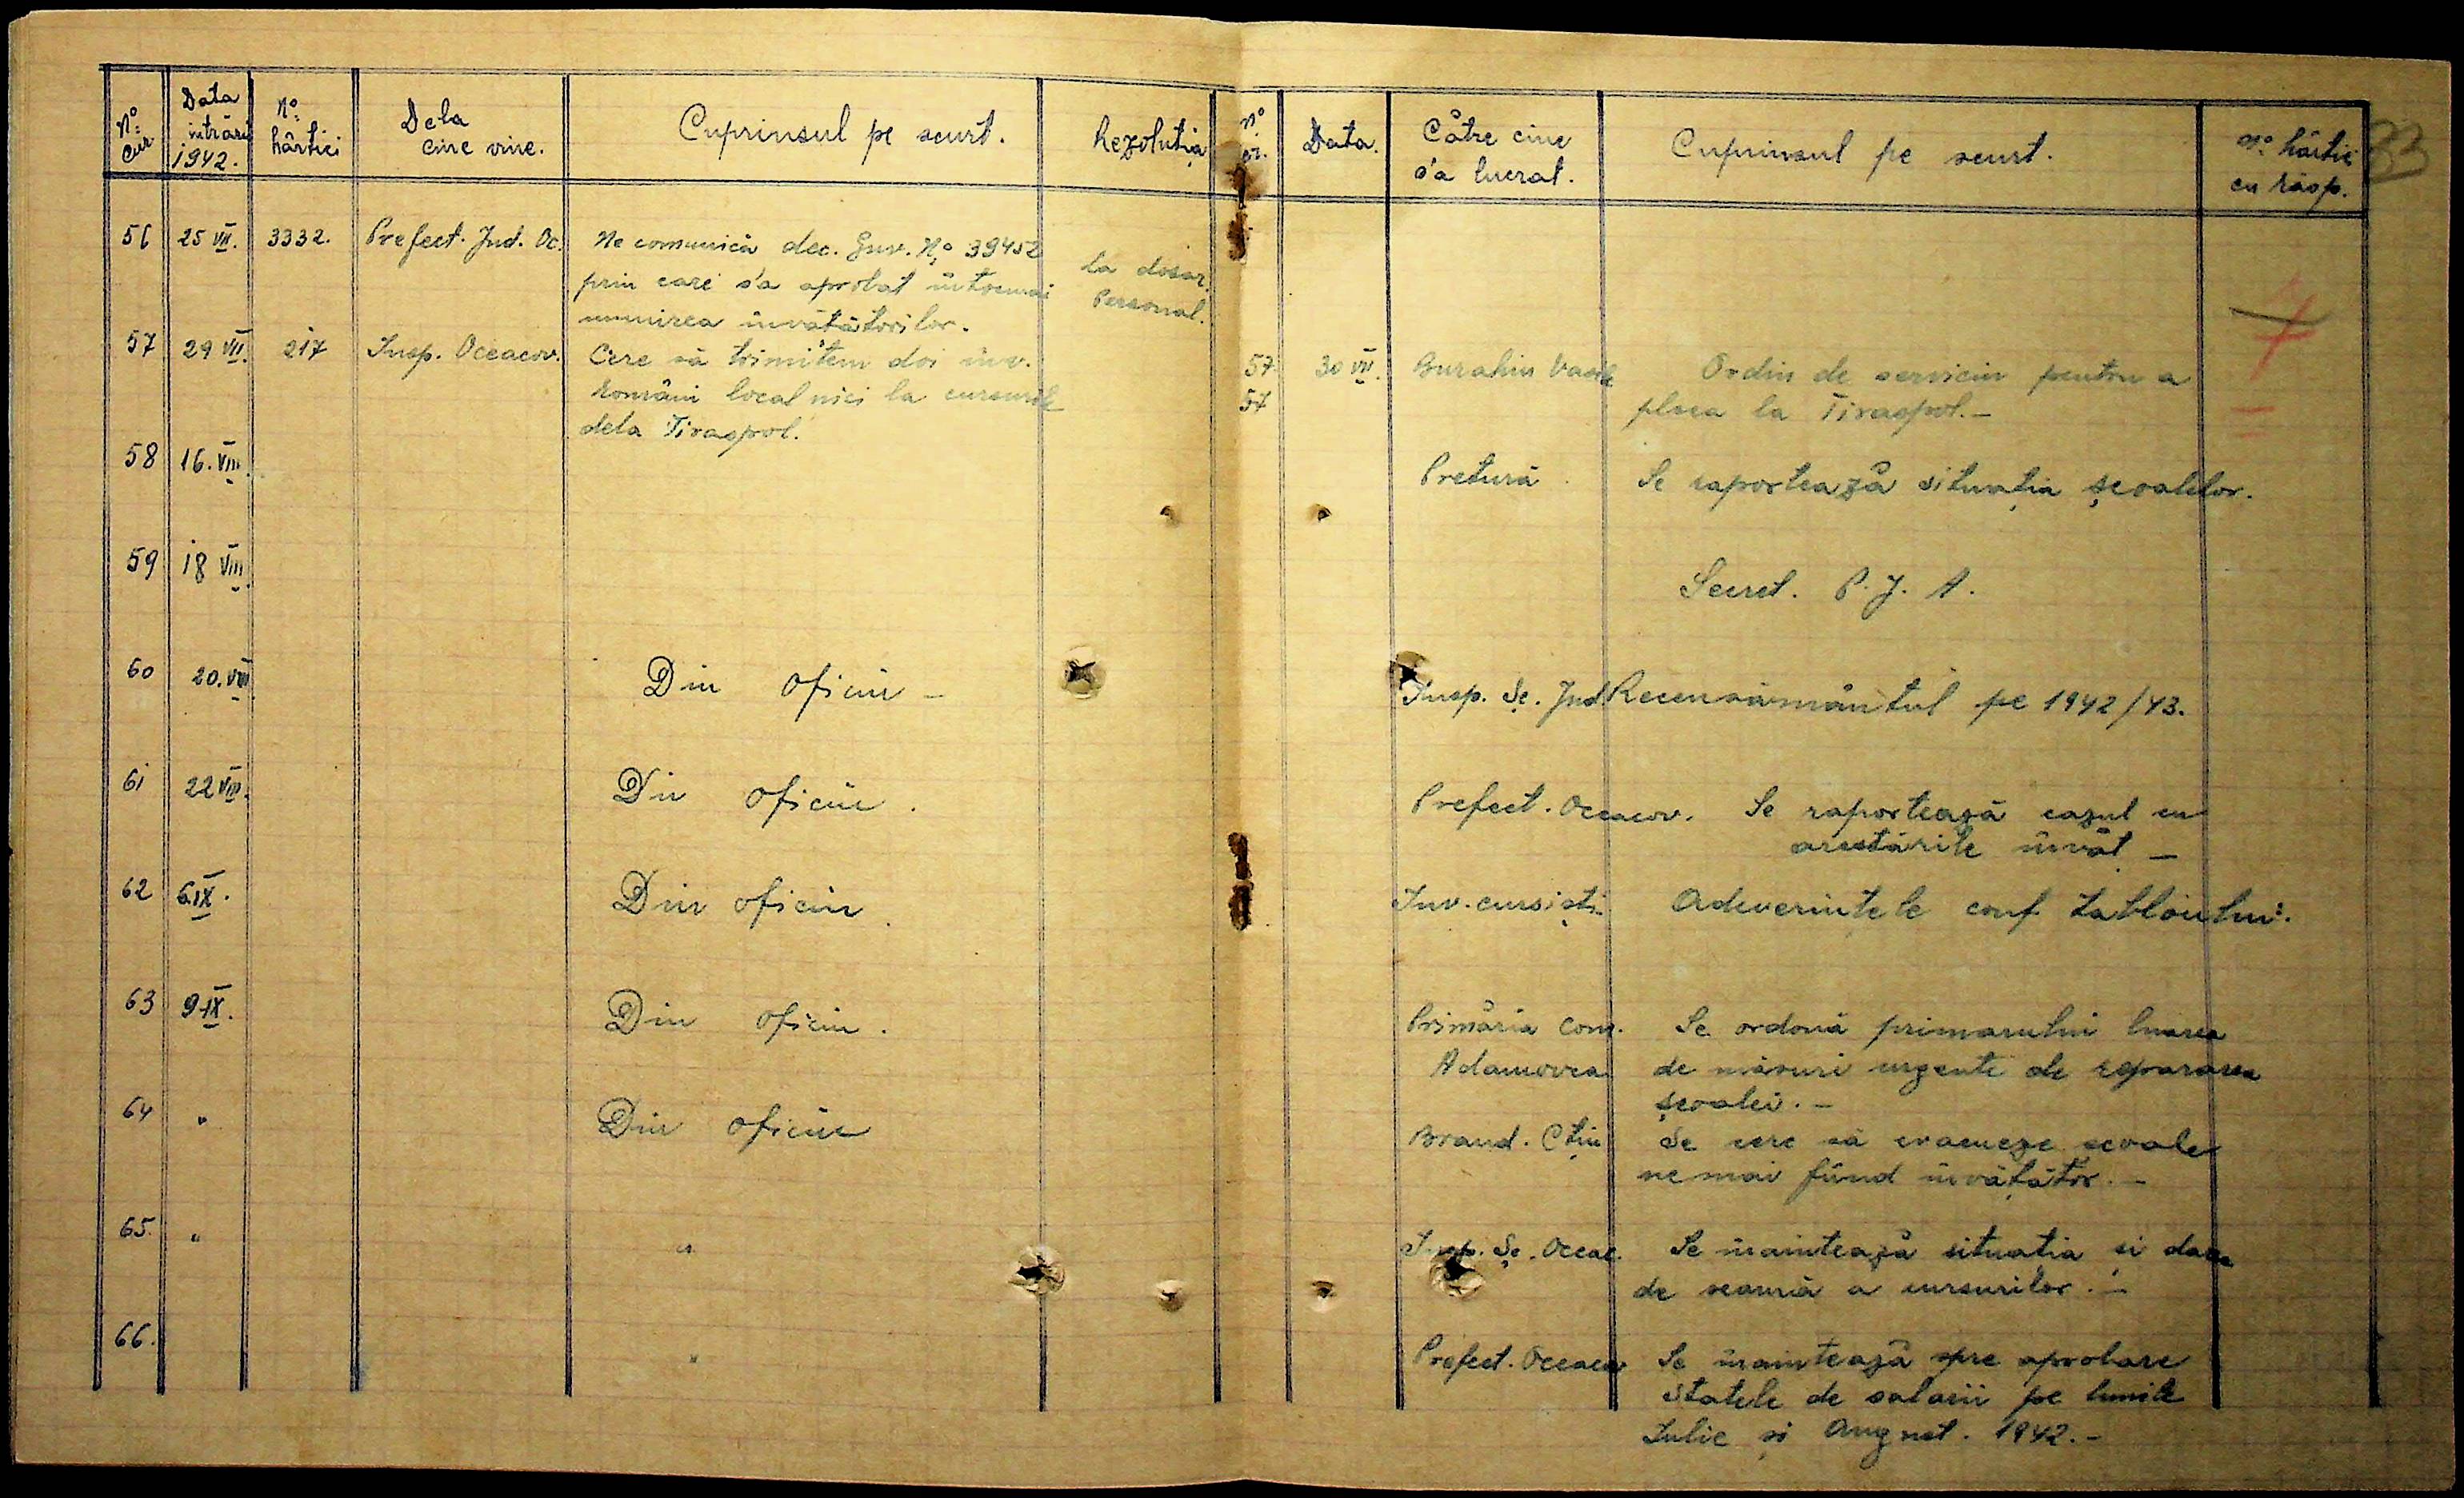 33
Nº cur.
Data intrării 1942.
Nº hârtiei
Dela cine vine.
Cuprinsul pe scurt.
Rezoluția
Nº cr.
Data.
Către cine s'a lucrat.
Cuprinsul pe scurt.
Nº hârtie cu răsp.
56 25 VII. 3332. Prefect. Jud. Oc. Ne comunică dec. Guv. Nº 39452
prin care s'a aprobat întocmai
munirea învățătorilor.
la dosar.
Personal.
57 29 VII. 217 Insp. Oceacov. Cere să trimitem doi înv.
Români localnici la cursurile
dela Tiraspol.
57 30 VII. Vasile Ordin de serviciu pentru a
57 pleca la Tiraspol.-
58 16. VIII. Pretură Se raportează situația școalelor.
59 18 VIII. Secret. P. J. A.
60 20. VIII Din oficiu - Insp. Șc. Jud. Recensământul pe 1942/43.
61 22 VIII. Din oficiu. Prefect. Oceacov. Se raportează cazul cu
arestările învăț -
62 6 IX. Din oficiu. Inv. cursiști. Adeverințele conf tabloului.
63 9 IX. Din oficiu. Primăria Com. Se ordonă primarului luarea
Adamovca de măsuri urgente de repararea
școalei. -
64 " Din oficiu Brand. Ctin Se cere să evacueze școale
ne mai fiind învățător. -
65. " " Insp. Șc. Oceac. Se înaintează situația și darea
de seamă a cursurilor. -
66. " Prefect. Oceacov Se înaintează spre aprobare
Statele de salarii pe lunile
Iulie și August. 1942. -